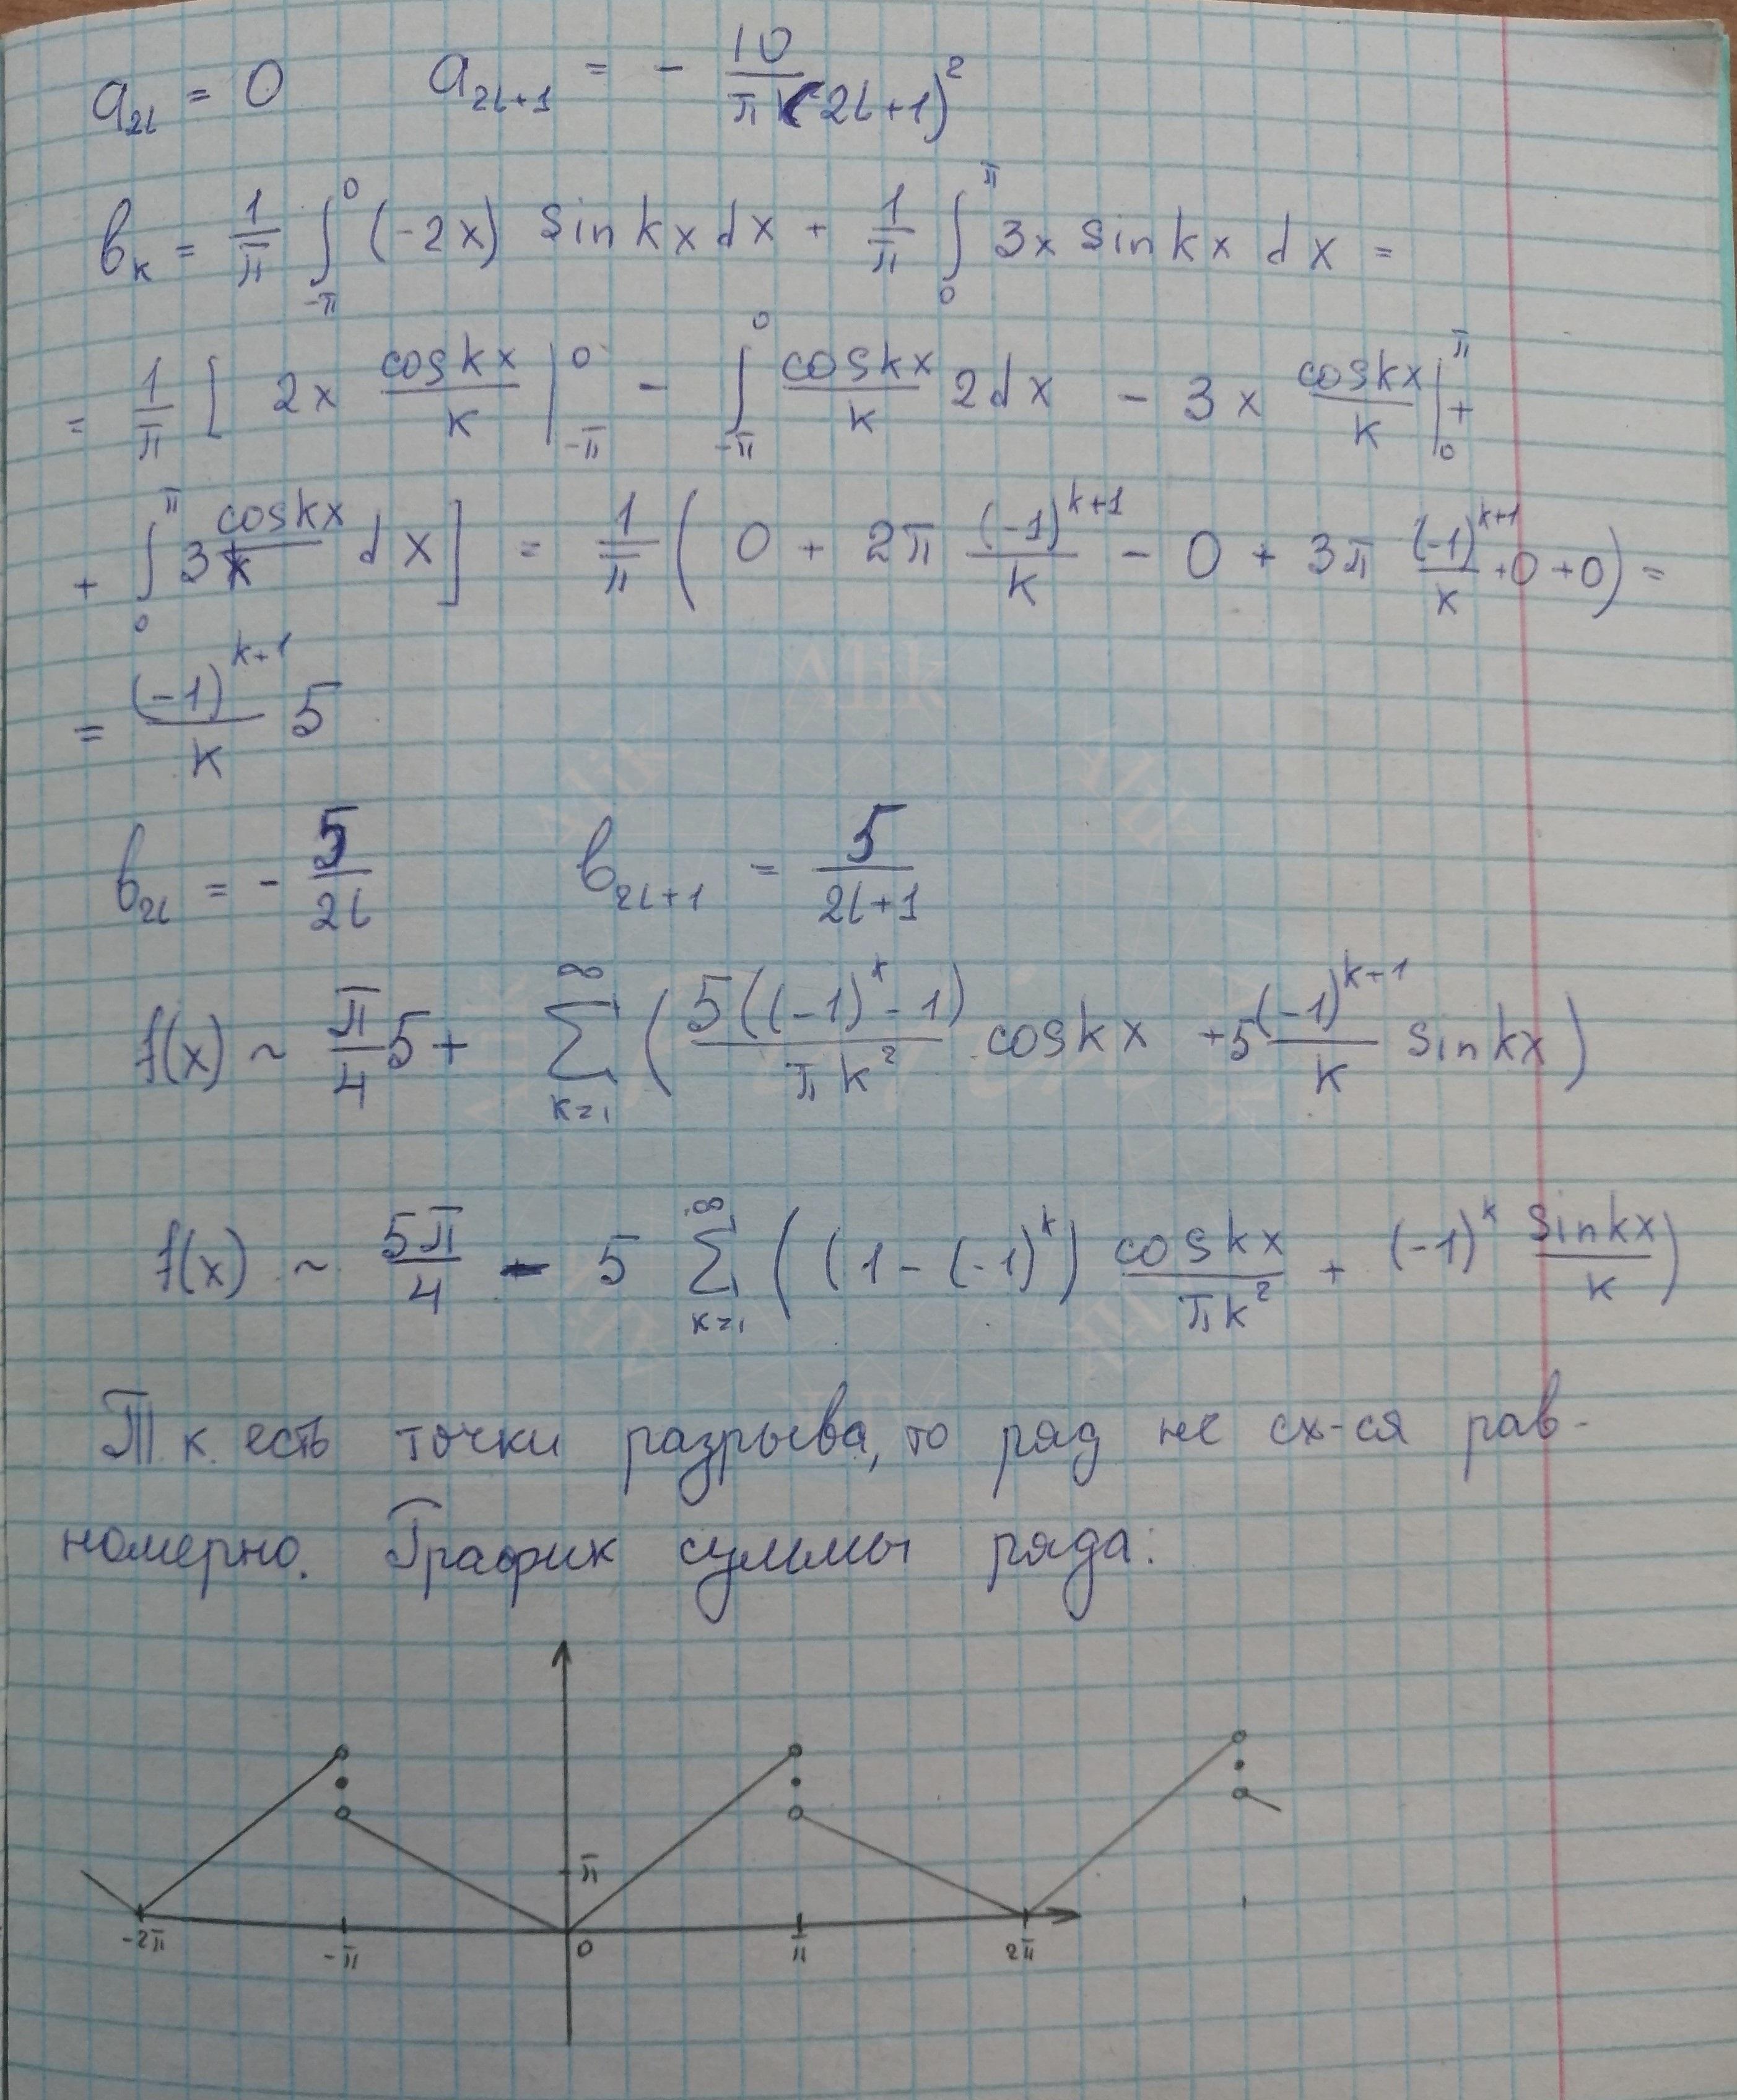 a_{2l} = 0 a_{2l+1} = - \frac{10}{π(2l+1)^2}
b_k = \frac{1}{π} \int_{-π}^{0} (-2x) sin kx dx + \frac{1}{π} \int_{0}^{π} 3x sin kx dx =
= \frac{1}{π} [ 2x \frac{cos kx}{k} |_{-π}^{0} - \int_{-π}^{0} \frac{cos kx}{k} 2dx - 3x \frac{cos kx}{k} |_{0}^{π} +
+ \int_{0}^{π} 3 \frac{cos kx}{k} dx ] = \frac{1}{π} ( 0 + 2π \frac{(-1)^{k+1}}{k} - 0 + 3π \frac{(-1)^{k+1}}{k} + 0 + 0 ) =
= \frac{(-1)^{k+1}}{k} 5
b_{2l} = - \frac{5}{2l} b_{2l+1} = \frac{5}{2l+1}
f(x) ~ \frac{π}{4} 5 + \sum_{k=1}^{∞} ( \frac{5((-1)^k - 1)}{π k^2} cos kx + 5 \frac{(-1)^{k+1}}{k} sin kx )
f(x) ~ \frac{5π}{4} - 5 \sum_{k=1}^{∞} ( (1 - (-1)^k) \frac{cos kx}{π k^2} + (-1)^k \frac{sin kx}{k} )
Т.к. есть точки разрыва, то ряд не сх-ся рав-
номерно. График суммы ряда:
π
-2π -π 0 π 2π
Alik
Alik